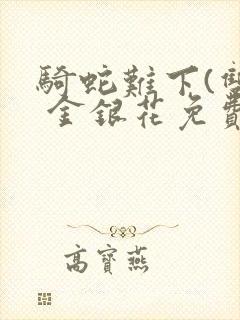 騎蛇難下(雙
金銀花免費
高寶燕